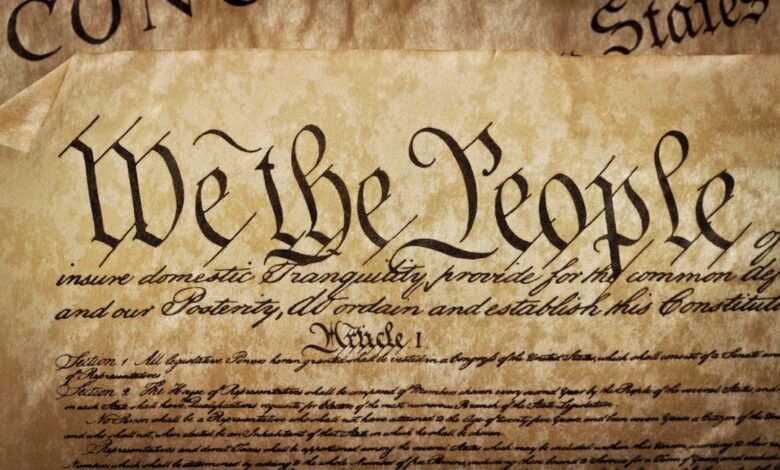 CON States
We the People of
insure domestic Tranquility, provide for the common
and our Posterity, do ordain and establish this
Article I.
Section 1. All legislative Powers herein granted shall be vested in a Congress of the United States, which shall consist of a Senate and
of Representatives.
Section 2. The House of Representatives shall be composed of Members chosen every second Year by the People of the several States, and
in each State shall have Qualifications requisite for Electors of the most numerous Branch of the State Legislature.
No Person shall be a Representative who shall not have attained to the Age of twenty five Years, and been seven Years a Citizen of the
and who shall not, when elected, be an Inhabitant of that State in which he shall be chosen.
Representatives and direct Taxes shall be apportioned among the several States which may be included within this Union, according to their
Numbers, which shall be determined by adding to the whole Number of free Persons, including those bound to Service for a Term of Years, and